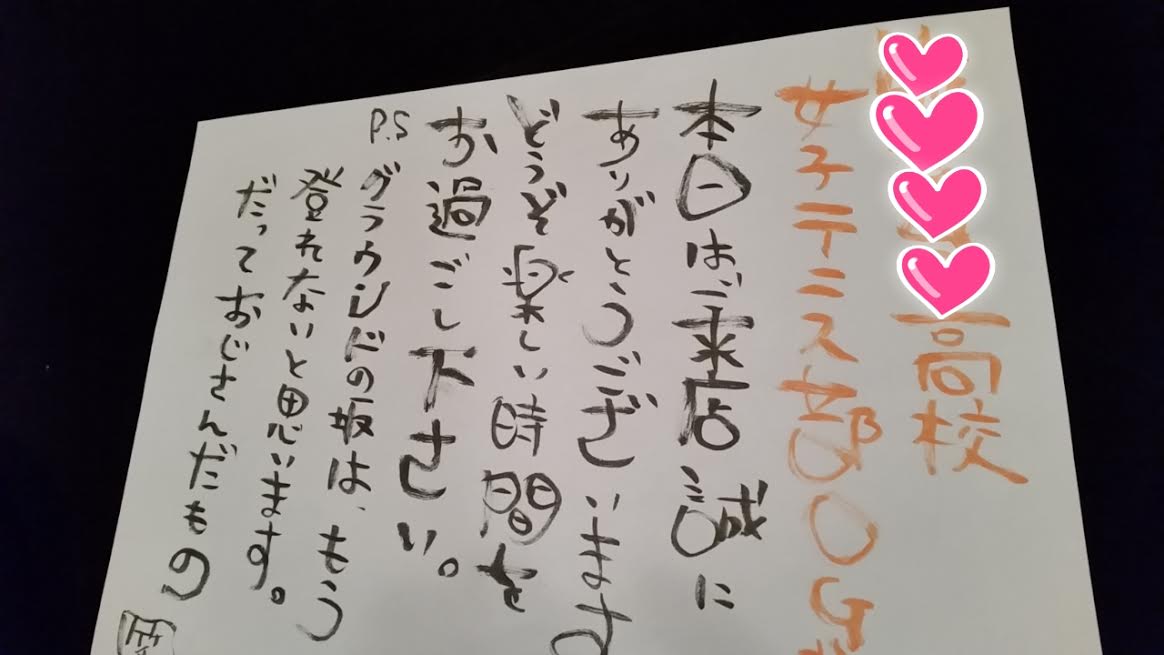 高校
女子テニス部OG
本日はご来店誠に
ありがとうございます
どうぞ楽しい時間を
お過ごし下さい。
P.S グラウンドの坂は、もう
登れないと思います。
だっておじさんだもの